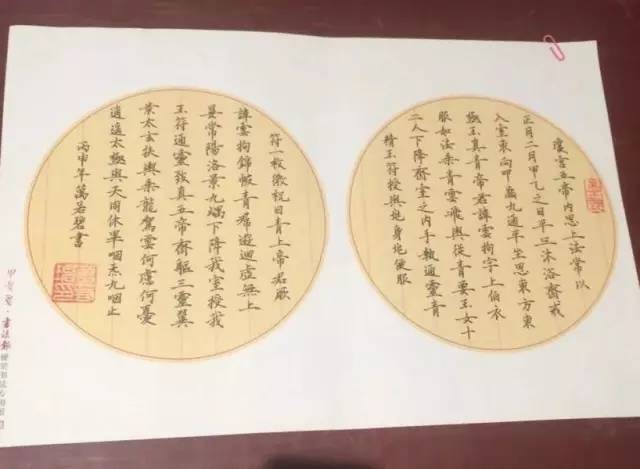 瓊宮五帝內思上法常以
正月二月甲乙之日平旦沐浴齋戒
入室東向叩齒九通平坐思東方東
極玉真青帝君諱雲拘字上伯衣
服如法乘青雲飛輿從青要玉女十
二人下降齋室之內手執通靈青
精玉符授與兆身兆便服
符一枚微祝曰青上帝君厥
諱雲拘錦帔青帬遊迴虛無上
晏常陽洛景九嵎下降我室授我
玉符通靈致真五帝齊軀三靈翼
景太玄扶輿乘龍駕雲何慮何憂
逍遙太極與天同休畢咽炁九咽止
丙申年萬若碧書
書法報